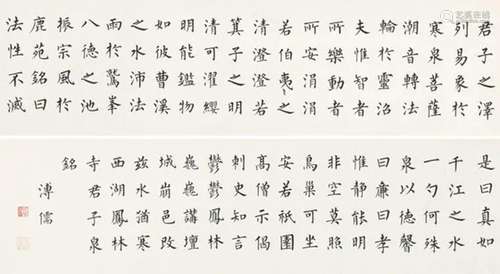 君子之澤
列易象於
寒泉菩薩
潮音轉法
輪於靈沼
夫惟智者
所樂動者
所安涓涓
若伯夷之
清澄澄若
箕子之明
清可濯纓
明能鑑物
如彼曹溪
之水沛法
雨於鷲峯
八德之池
振宗風於
鹿苑銘曰
法性不滅
是曰真如
千江之水
一勺何殊
泉以德馨
曰廉曰孝
惟靜能明
非空莫照
鳥巢可居
安若祇園
高僧示偈
刺史知言
鬱鬱鳳林
巍巍講壇
城崩邑改
茲水猶寒
西湖鳳林
寺君子泉
銘
溥儒